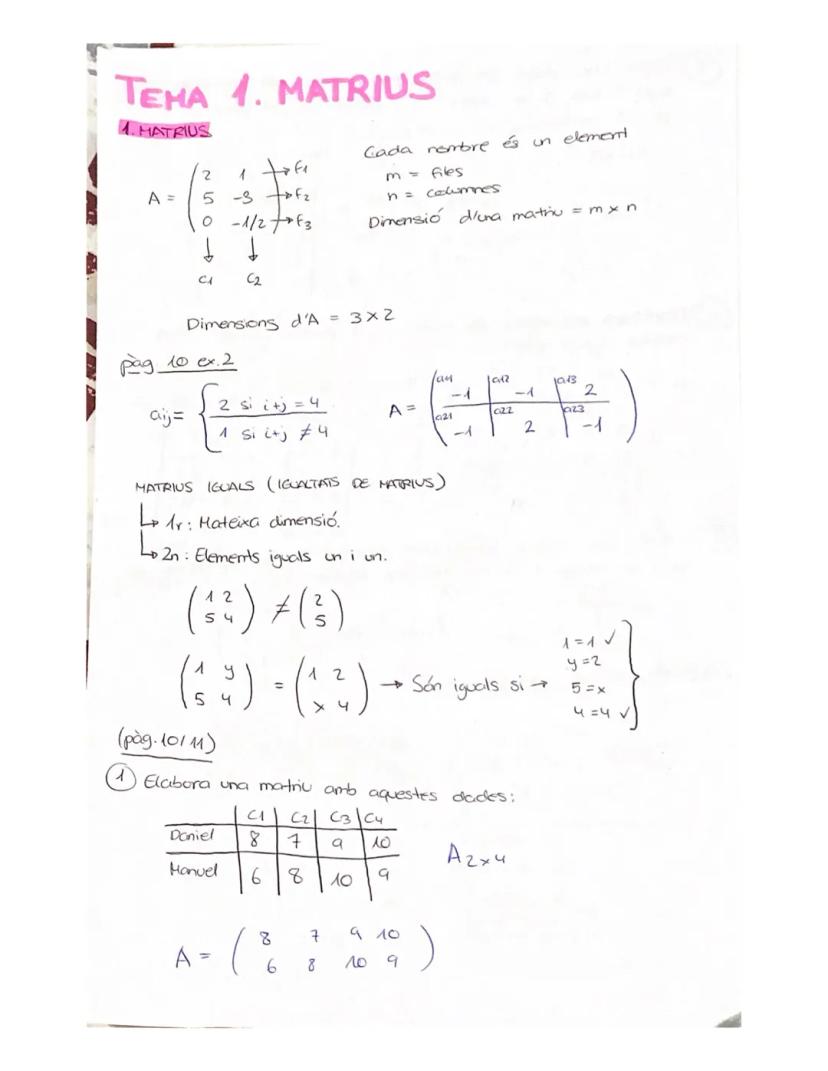 TEMA 1. MATRIUS
1. MATRIUS
Cada nombre és un element
m = files
n = columnes
Dimensió d'una matriu = m x n
A = ( 2 1 → f1
5 -3 → f2
0 -1/2 → f3 )
↓ ↓
C1 C2
Dimensions d'A = 3 x 2
pàg. 10 ex. 2
aij = { 2 si i+j = 4
1 si i+j ≠ 4
A = ( a11 -1 a12 -1 a13 2
a21 -1 a22 2 a23 -1 )
MATRIUS IGUALS (IGUALTATS DE MATRIUS)
↳ 1r: Mateixa dimensió.
↳ 2n: Elements iguals un i un.
( 1 2
5 4 ) ≠ ( 2
5 )
( 1 y
5 4 ) = ( 1 2
x 4 ) → Són iguals si →
1 = 1 ✓
y = 2
5 = x
4 = 4 ✓ }
(pàg. 10/11)
1 Elabora una matriu amb aquestes dades:
C1 C2 C3 C4
Daniel 8 7 9 10
Manuel 6 8 10 9
A 2x4
A = ( 8 7 9 10
6 8 10 9 )